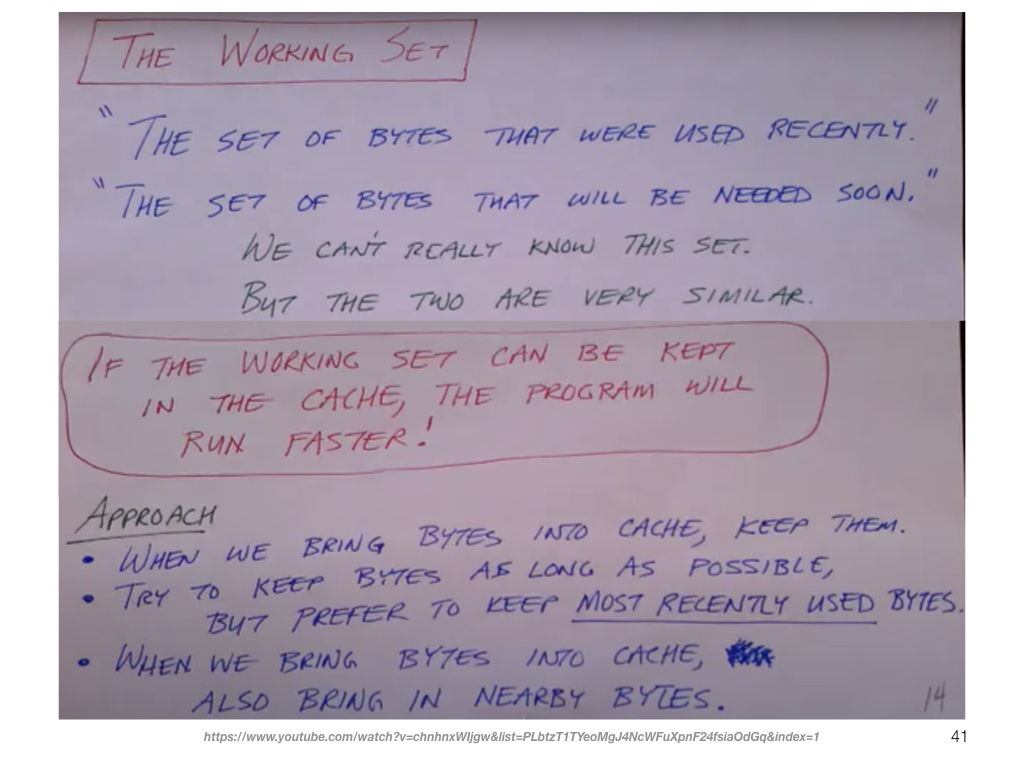 THE WORKING SET
"THE SET OF BYTES THAT WERE USED RECENTLY."
"THE SET OF BYTES THAT WILL BE NEEDED SOON."
WE CAN'T REALLY KNOW THIS SET.
BUT THE TWO ARE VERY SIMILAR.
IF THE WORKING SET CAN BE KEPT
IN THE CACHE, THE PROGRAM WILL
RUN FASTER!
APPROACH
• WHEN WE BRING BYTES INTO CACHE, KEEP THEM.
• TRY TO KEEP BYTES AS LONG AS POSSIBLE,
BUT PREFER TO KEEP MOST RECENTLY USED BYTES.
• WHEN WE BRING BYTES INTO CACHE,
ALSO BRING IN NEARBY BYTES.
14
https://www.youtube.com/watch?v=chnhnxWIjgw&list=PLbtzT1TYeoMgJ4NcWFuXpnF24fsiaOdGq&index=1
41